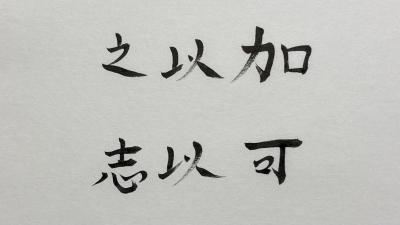 加以之
可以志